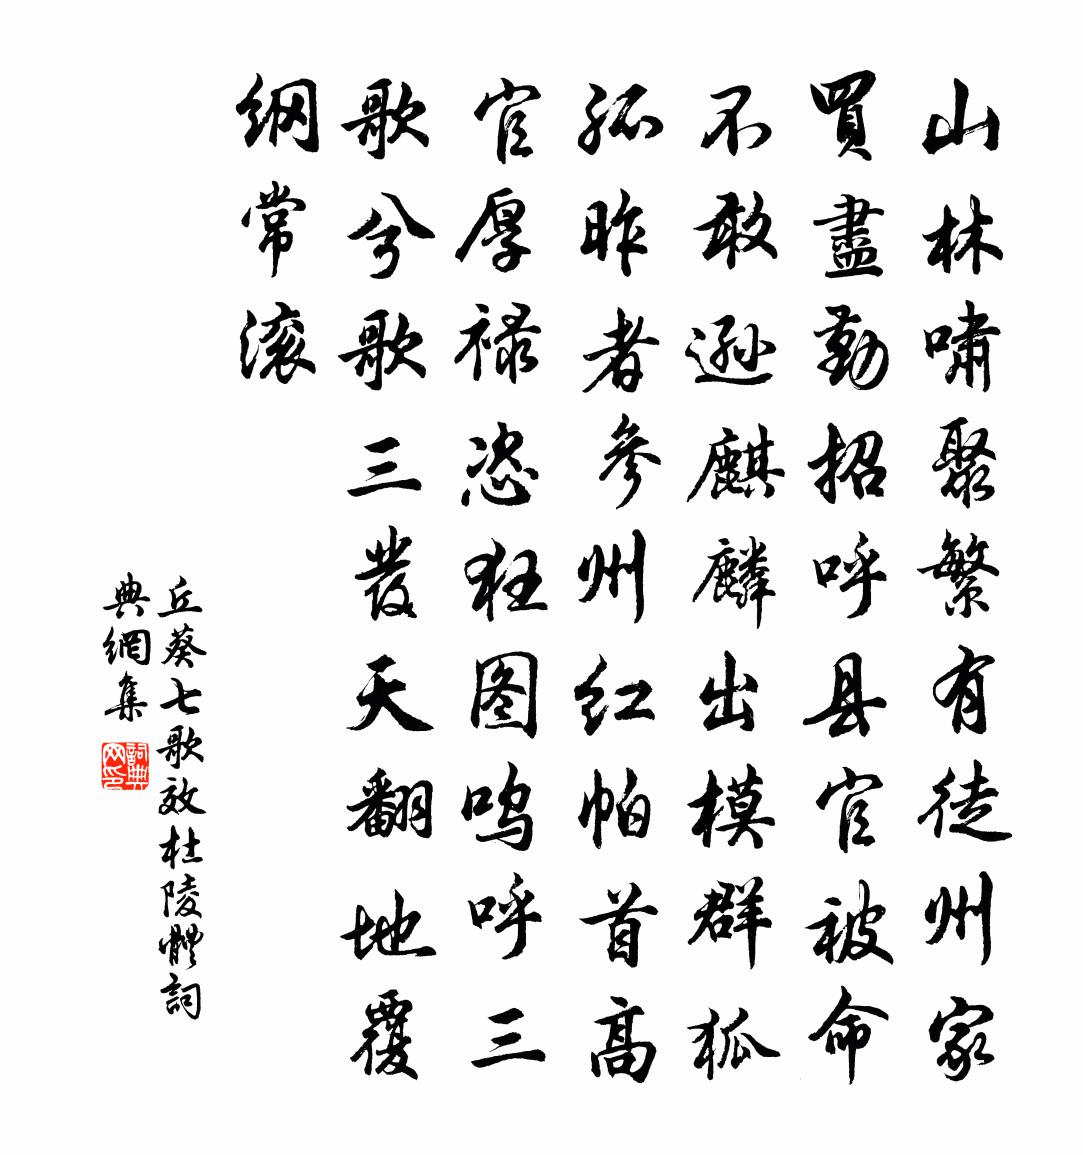 山林嘯聚繁有徒州家
買盡勤招呼县官被命
不敢遜麒麟出模群狐
孤昨者參州红帕首高
官厚禄恣狂图呜呼三
歌兮歌三發天翻地覆
纲常滚
丘葵七歌效杜陵體詞
典網集
詞典
网印